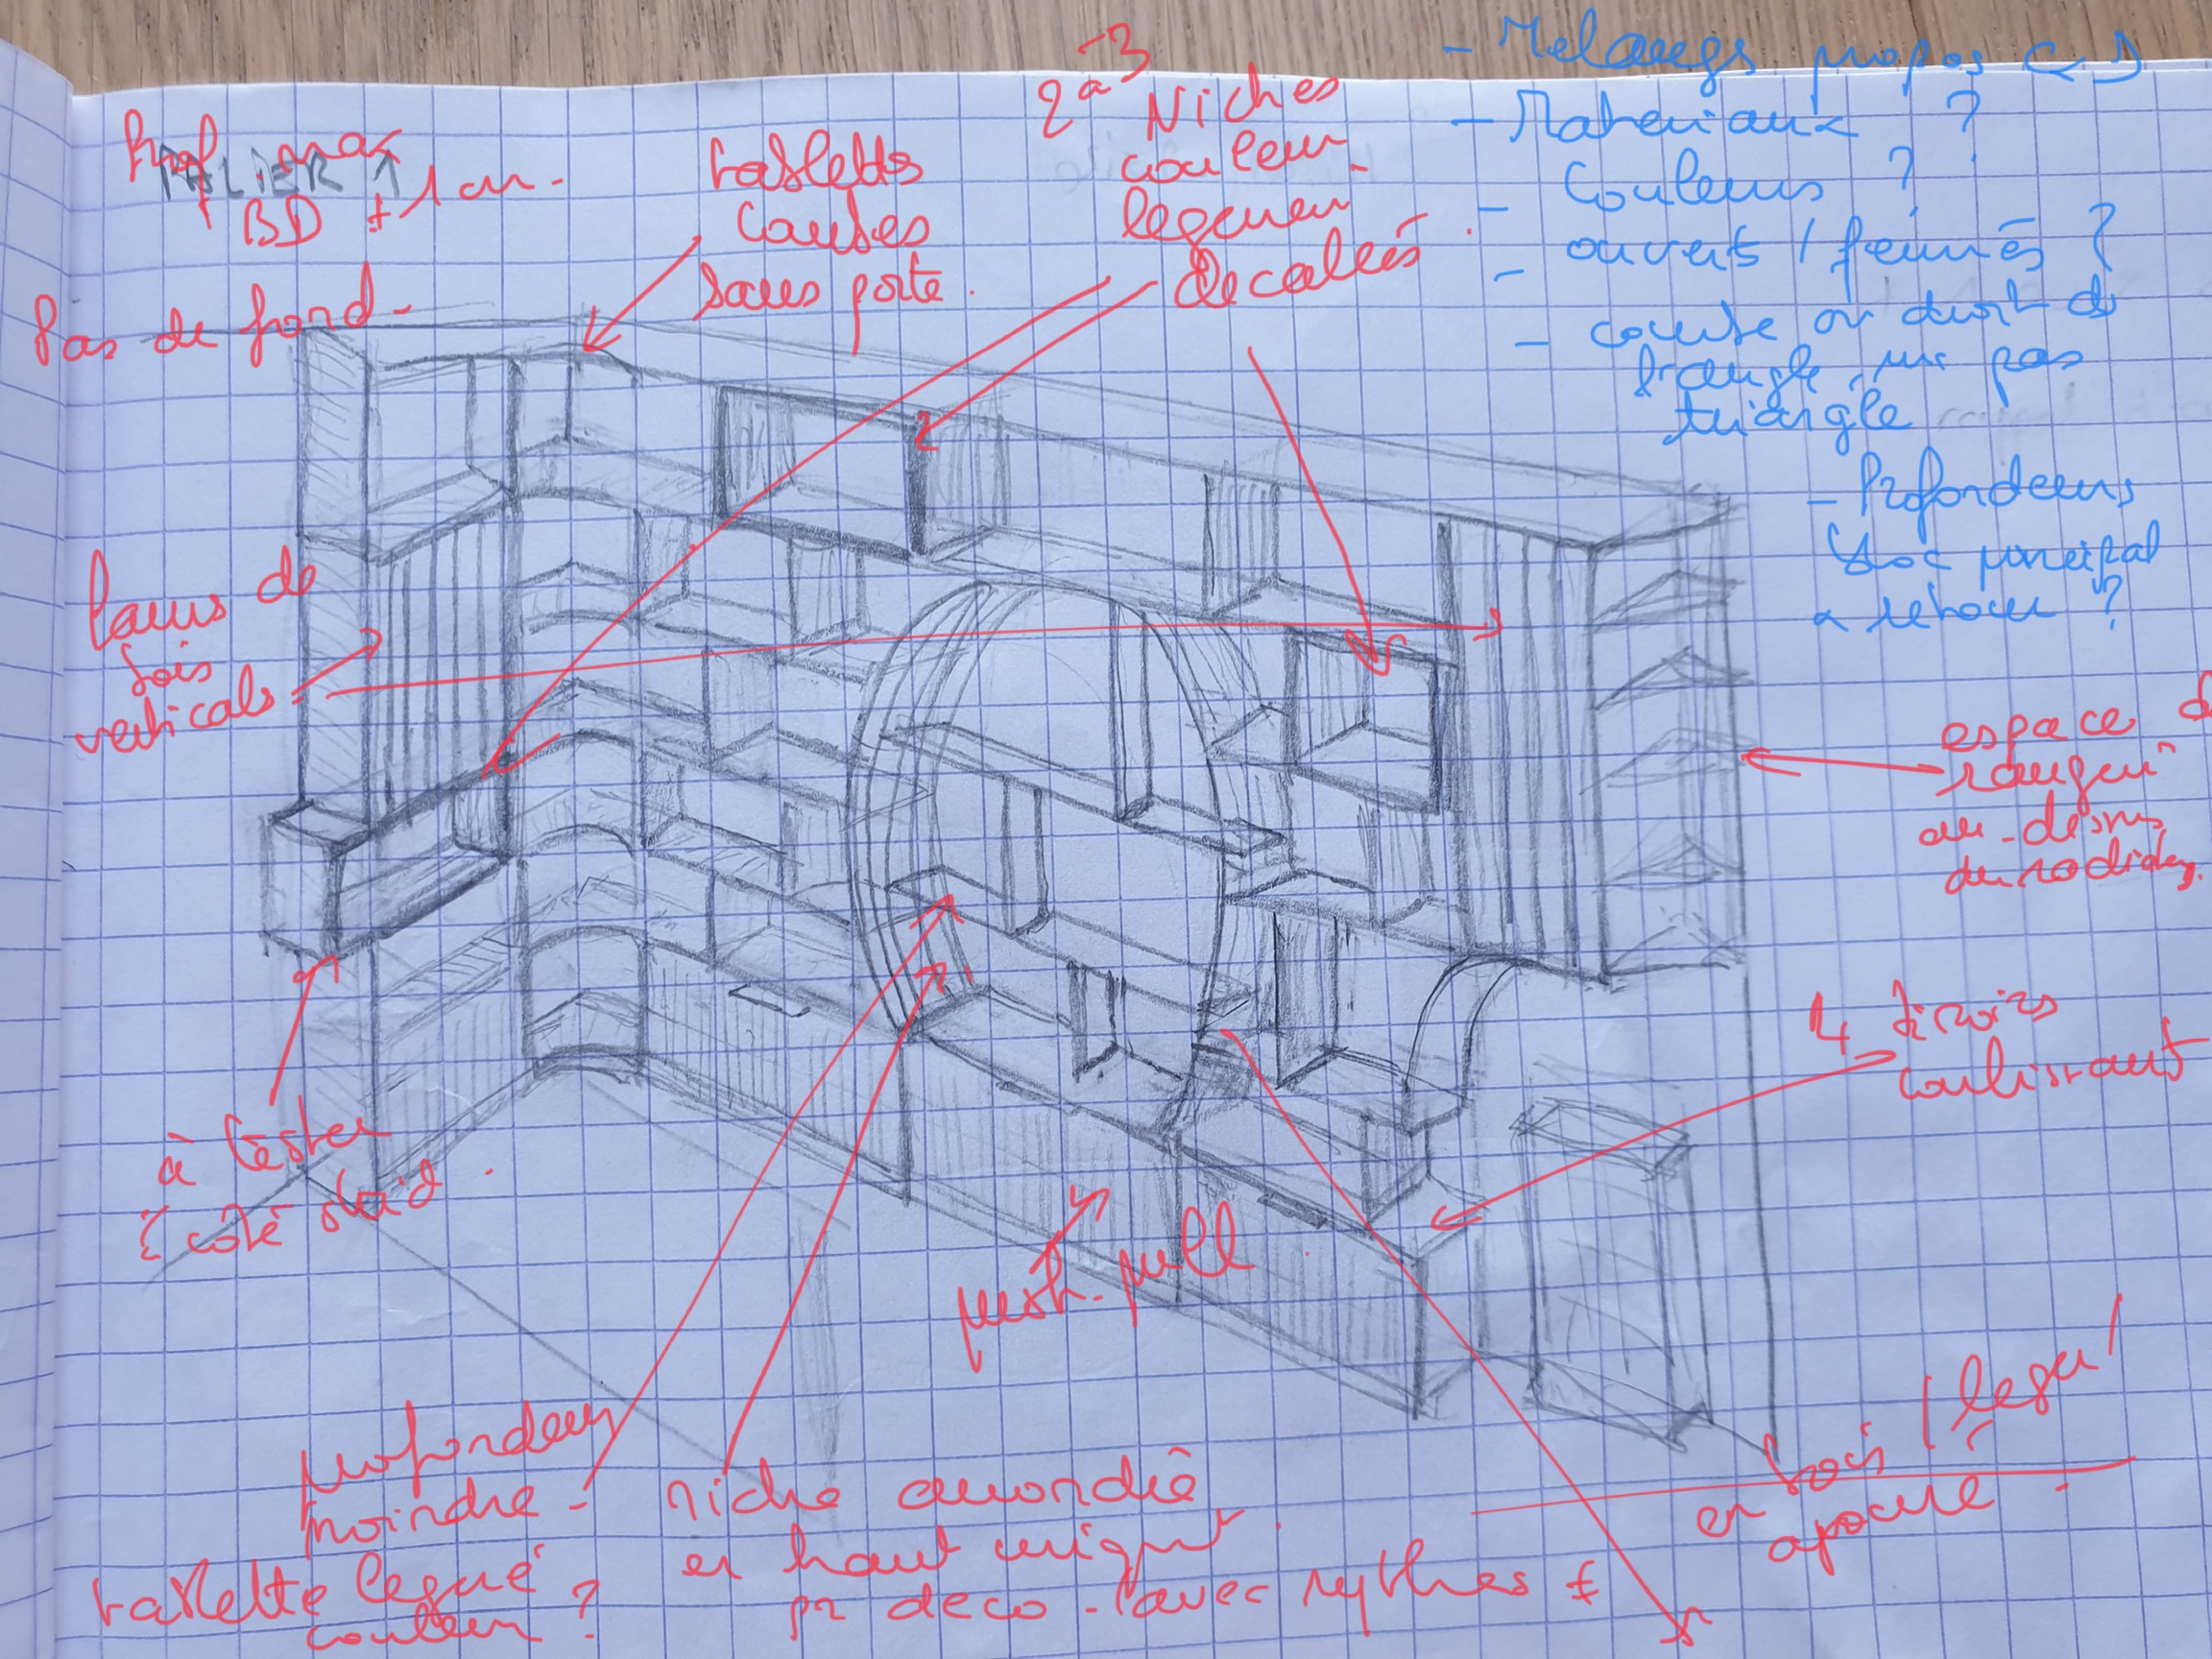 Prof. max
PALIER 1
BD + 1 cm.
Pas de fond.
tablettes
courbes
sans porte.
2 à 3
Niches
couleur
légèrem
décallées
- Melangs propos
- Materiaux ?
- Couleurs ?
- ouverts / fermés ?
- courbe ou droit ds
l'angle, mx pas
triangle
- Profondeurs
bloc principal
& retour ?
Paws de
bois
verticals
espace d
rangem
au-dessus
du
4 tiroirs
coulissant
à tester
côté
push-pull
profondeur
moindre -
tablette laqué
couleur ?
niche arrondie
en haut uniqmt
pr deco - avec rythmes ≠
en bois / laqué